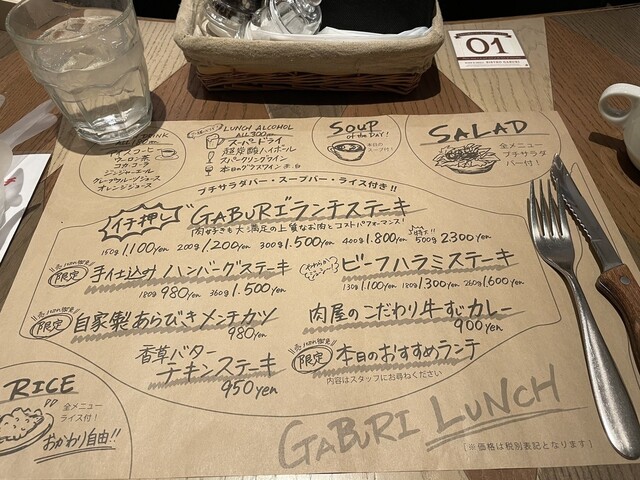 01
LUNCH ALCOHOL
ALL 300yen
スーパードライ
超炭酸ハイボール
スパークリングワイン
本日のグラスワイン 赤・白
ウーロン茶
コカ・コーラ
ジンジャーエール
グレープフルーツジュース
オレンジジュース
SOUP
of the DAY!
本日の
スープ付!
SALAD
全メニュー
プチサラダ
バー付!
プチサラダバー・スープバー・ライス付き!!
イチ押し "GABURI"ランチステーキ
肉好きも大満足の上質なお肉とコストパフォーマンス!
150g 1,100yen 200g 1,200yen 300g 1,500yen 400g 1,800yen 500g 2,300yen
限定 手仕込みハンバーグステーキ
180g 980yen 360g 1,500yen
ビーフハラミステーキ
130g 1,100yen 180g 1,300yen 260g 1,600yen
限定 自家製あらびきメンチカツ
980yen
肉屋のこだわり牛すじカレー
900yen
香草バター
チキンステーキ
950yen
限定 本日のおすすめランチ
内容はスタッフにお尋ねください
RICE
全メニュー
ライス付!
おかわり自由!!
GABURI LUNCH
[※価格は税別表記となります]